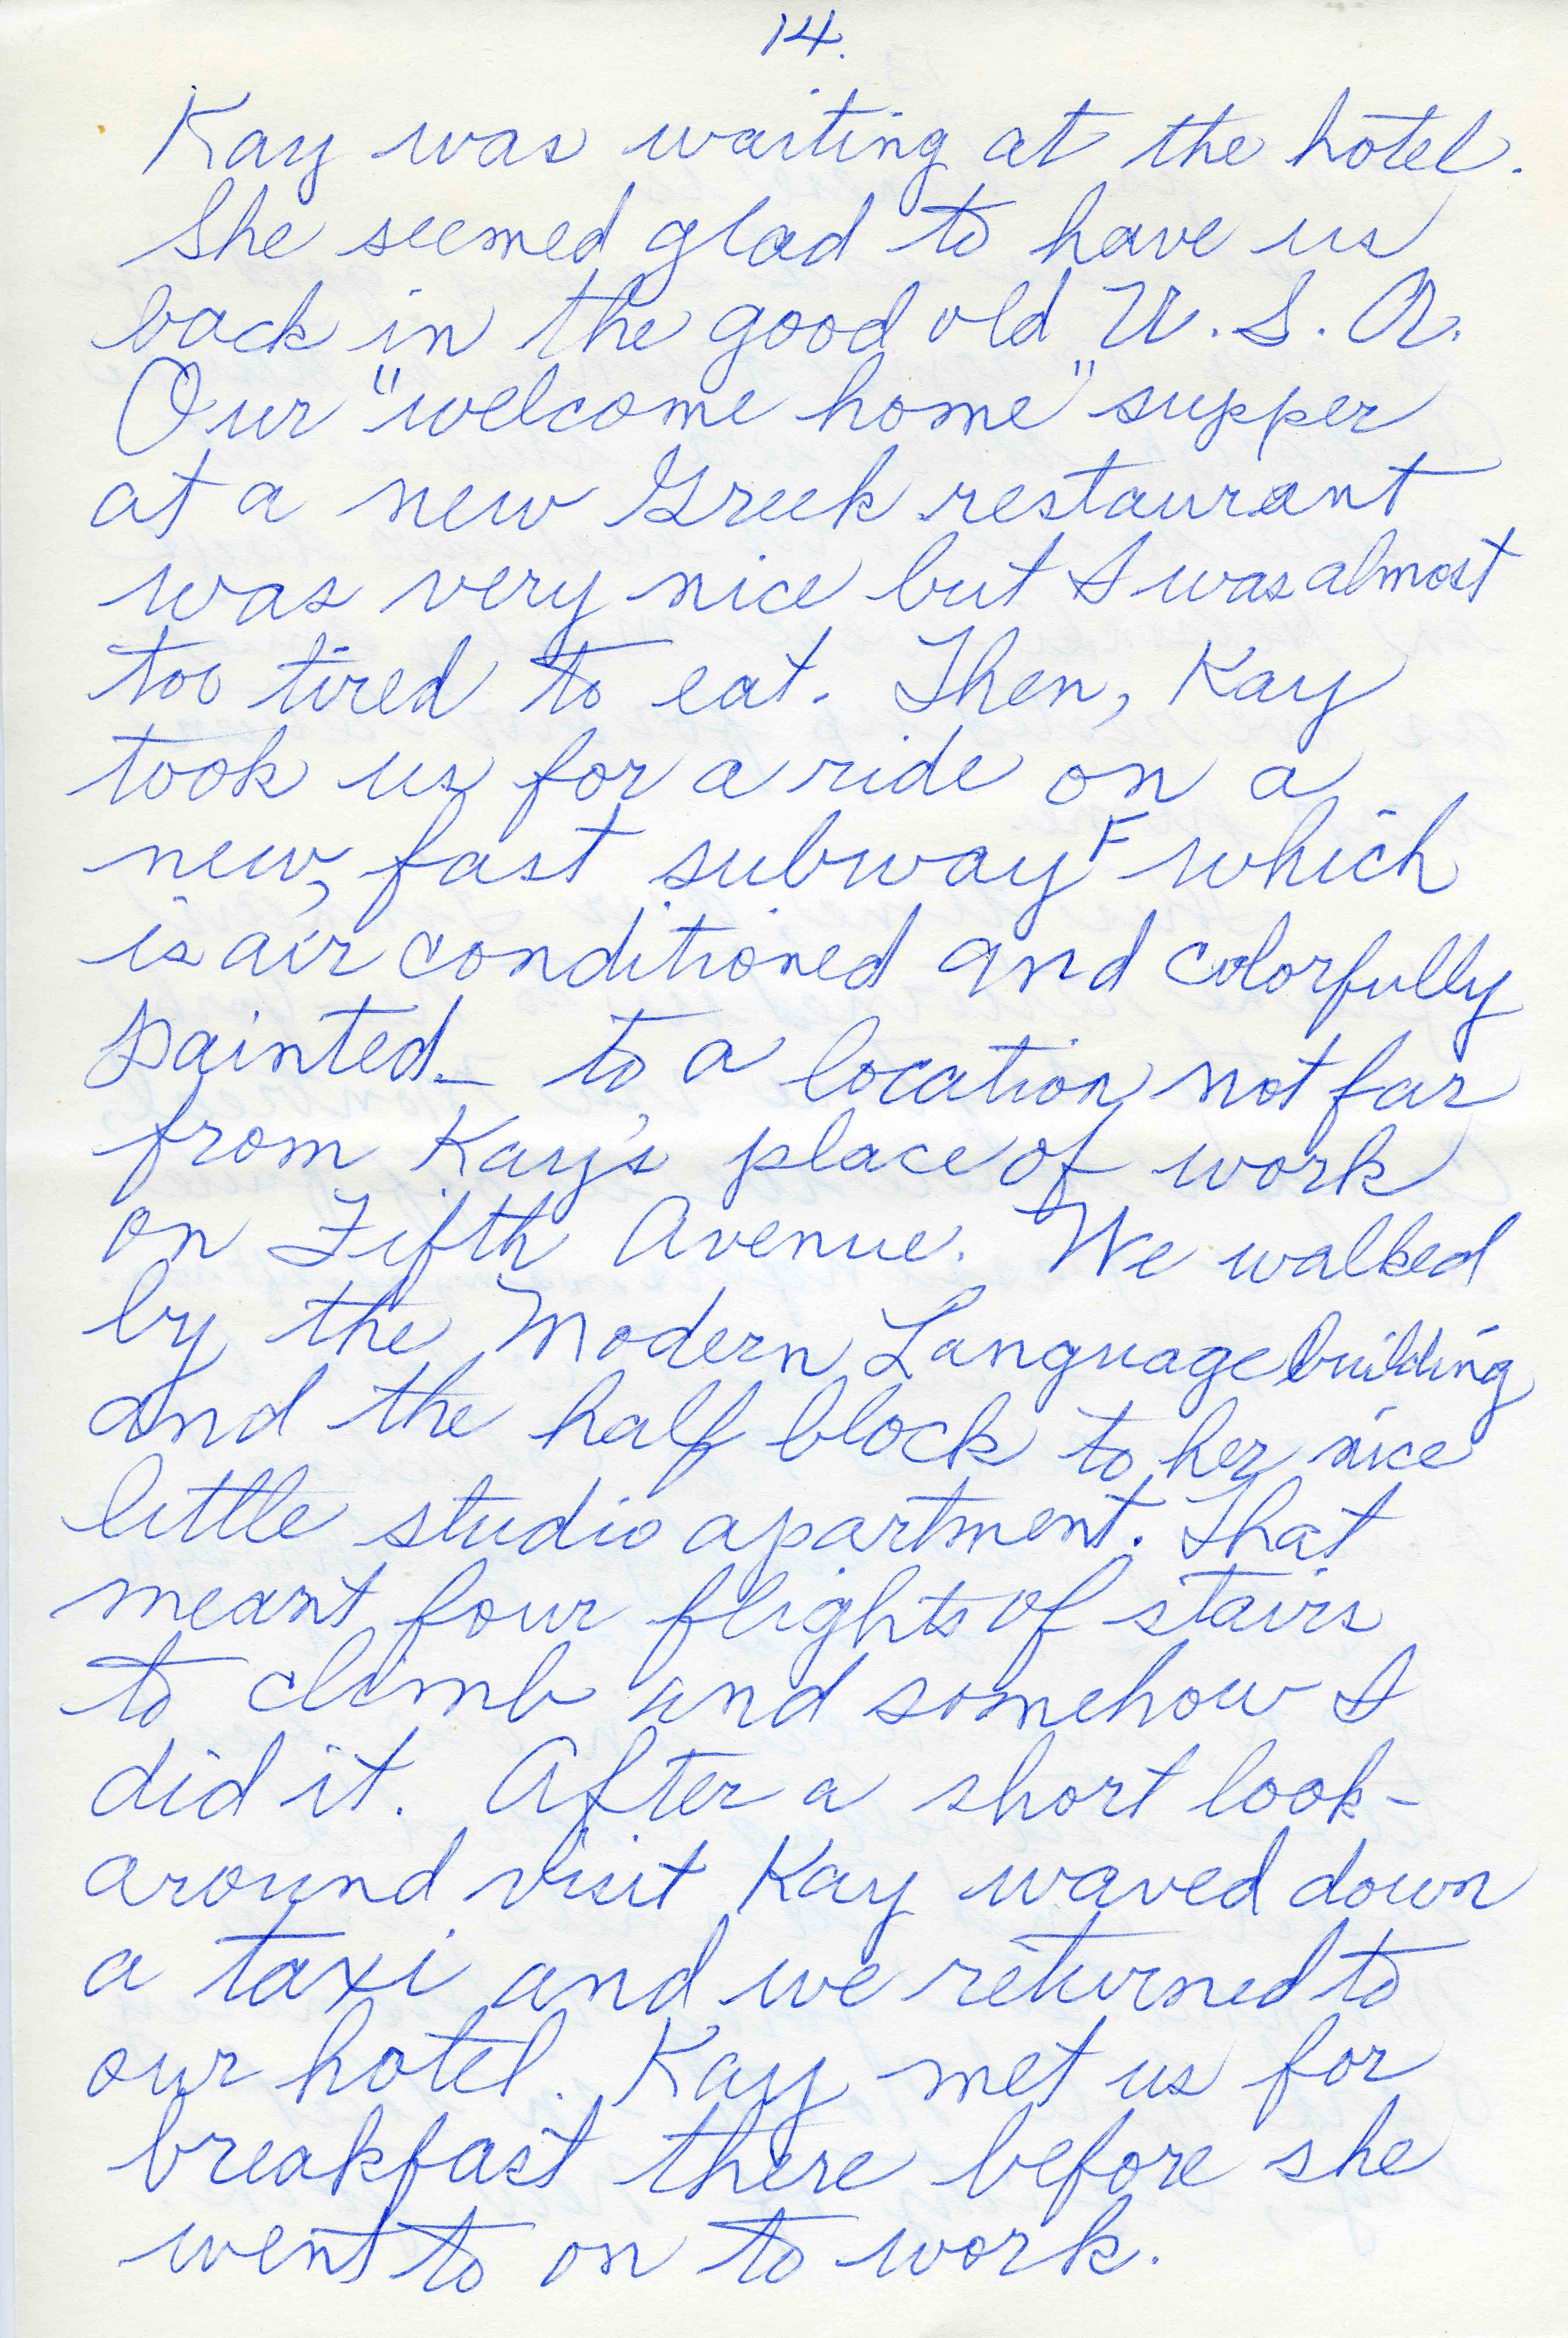 14.
Kay was waiting at the hotel.
She seemed glad to have us
back in the good old U.S.A.
Our "welcome home" supper
at a new Greek restaurant
was very nice but I was almost
too tired to eat. Then, Kay
took us for a ride on a
new, fast subway F which
is air conditioned and colorfully
painted - to a location not far
from Kay's place of work
on Fifth Avenue. We walked
by the Modern Language building
and the half block to her nice
little studio apartment. That
meant four flights of stairs
to climb and somehow I
did it. After a short look-
around visit Kay waved down
a taxi and we returned to
our hotel. Kay met us for
breakfast there before she
went to on to work.